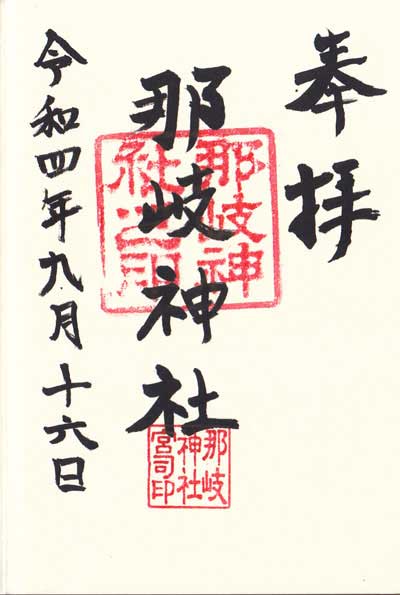 奉拝
那岐神社
那岐神
社之印
那岐
神社
宮司印
令和四年九月十六日